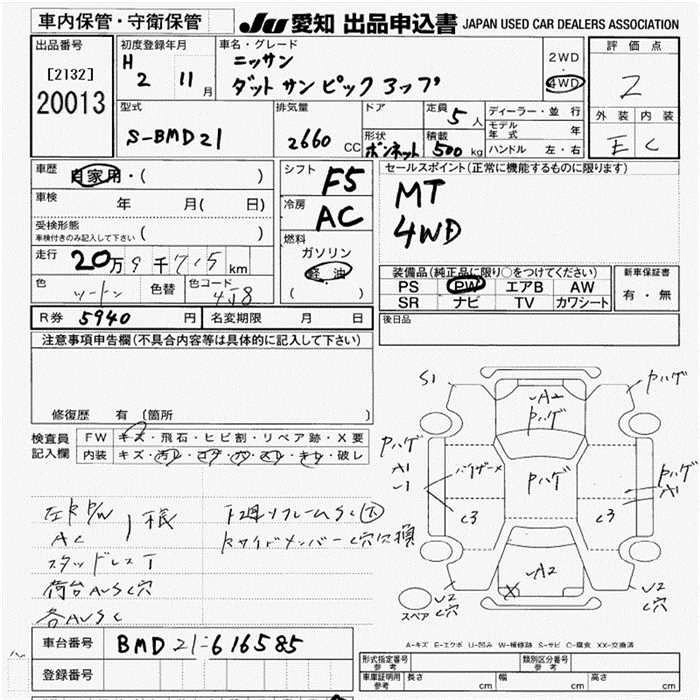 車内保管・守衛保管
JU 愛知 出品申込書 JAPAN USED CAR DEALERS ASSOCIATION
出品番号
[2132]
20013
初度登録年月
H 2 11月
車名・グレード
ニッサン
ダットサンピックアップ
2WD
・
4WD
評価点
2
型式
S-BMD21
排気量
2660 CC
ドア
形状
ボンネット
定員
5人
積載
500kg
ディーラー・並行
モデル年式 年
ハンドル 左・右
外装 内装
E C
車歴
自家用・( )
車検 年 月( 日)
受検形態
車検付きのみ記入して下さい ( )
走行 20万9千715km
色 ツートン 色替 色コード 4J8
シフト
F5
冷房
AC
燃料
ガソリン
軽油
( )
セールスポイント(正常に機能するものに限ります)
MT
4WD
装備品(純正品に限り○をつけてください)
PS PW エアB AW
SR ナビ TV カワシート
新車保証書
有・無
R券 5940円 名変期限 月 日
後日品
注意事項申告欄(不具合内容等は具体的に記入して下さい)
修復歴 有 [箇所 ]
検査員記入欄
FW キズ・飛石・ヒビ割・リペア跡・X要
内装 キズ・汚レ・コゲ・穴・スレ・キレ・破レ
AC
スタッドレス
荷台AUSC穴
各AUSC
S1
A2
Pハゲ
Pハゲ
Pハゲ
A1
Pハゲ
Pハゲ
A1
C3
C3
A2
X
U2
C穴
U2
C穴
スペア
A-キズ E-エクボ U-凹み W-補修跡 S-サビ C-腐食 XX-交換済
車台番号 BMD21-616585
登録番号
形式指定番号
参考
類別区分番号
参考
車庫証明用
参考
長さ cm 幅 cm 高さ cm